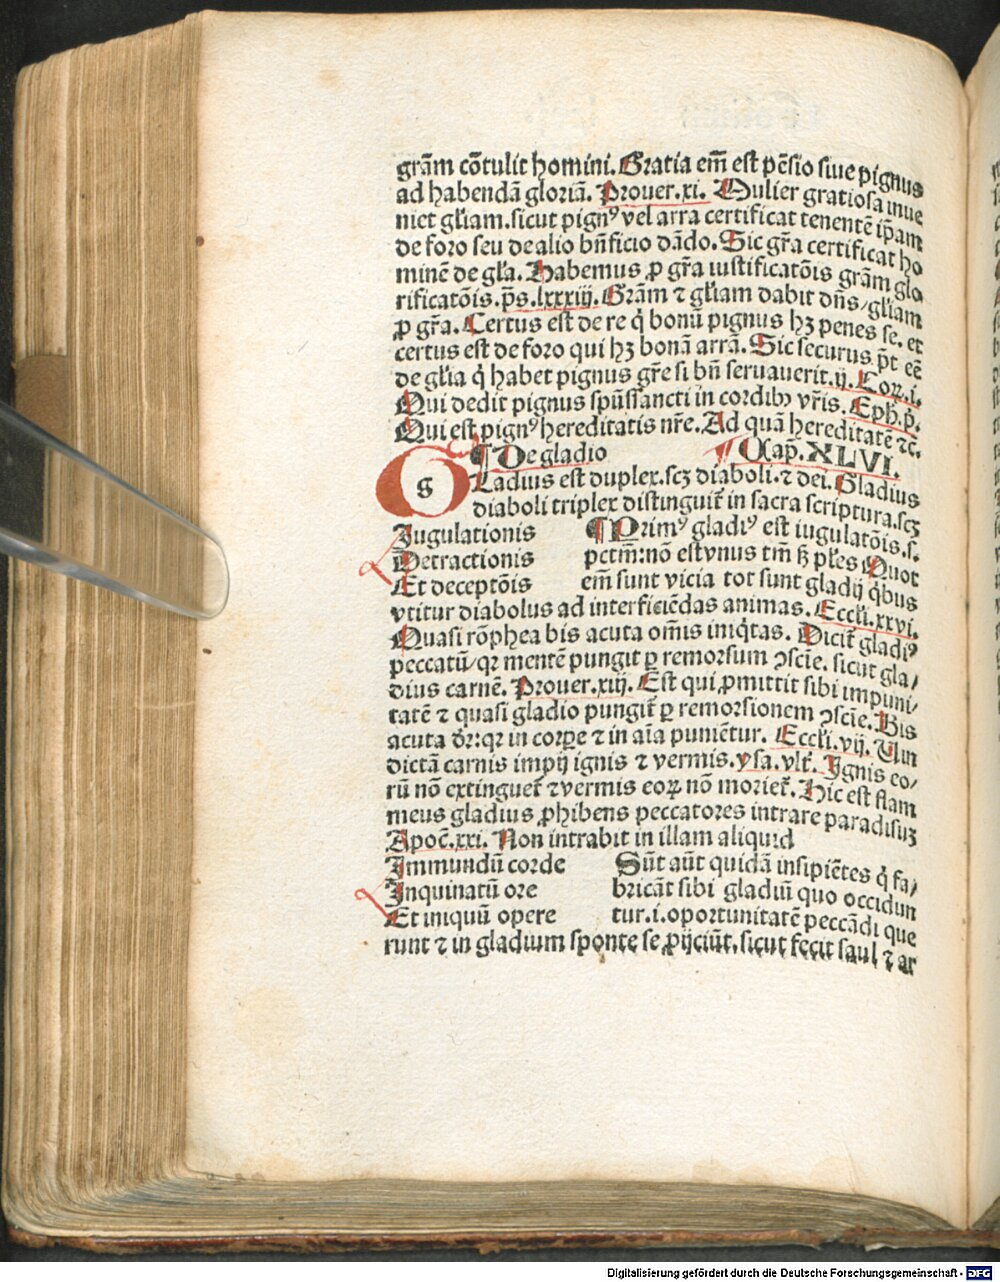 grām cōtulit homini. Gratia em̄ est pēsio siue pignus
ad habendā gloriā. Prouer.xi. Mulier gratiosa inue
niet gl̄iam.sicut pignꝰ vel arra certificat tenentē ip̄am
de foro seu de alio bn̄ficio dādo. Sic gr̄a certificat ho
minē de gl̄a. Habemus ꝓ gr̄a iustificatōis grām glo
rificatōis.p̄s.lxxxiij. Grām ⁊ gl̄iam dabit dn̄s/gl̄iam
ꝓ gr̄a. Certus est de re q̇ bonū pignus hꝫ penes se. et
certus est de foro qui hꝫ bonā arrā. Sic securus p̄t eē
de gl̄ia q̇ habet pignus gr̄e si bn̄ seruauerit.ij. Coꝝ.i.
Qui dedit pignus spūssancti in cordibꝫ vr̄is. Eph.p̄.
Qui est pignꝰ hereditatis nr̄e. Ad quā hereditatē ⁊c̄.
¶ De gladio ¶ Cap̄. XLVI.
g Ladius est duplex.scꝫ diaboli.⁊ dei. Gladius
diaboli triplex distinguit̄ in sacra scriptura.scꝫ
Iugulationis ¶ Primꝰ gladiꝰ est iugulatōis.s.
Detractionis pctm̄:nō est vnus tm̄ ꝭ pl̄es Quot
Et deceptōis em̄ sunt vicia tot sunt gladij q̇bus
vtitur diabolus ad interficiēdas animas. Eccl̄i.xxvi.
Quasi rōphea bis acuta om̄is iniq̇tas. Dicit̄ gladiꝰ
peccatū/qꝛ mentē pungit ꝑ remorsum ↄsciē. sicut gla/
dius carnē. Prouer.xiij. Est qui ꝓmittit sibi impuni/
tatē ⁊ quasi gladio pungit̄ ꝑ remorsionem ↄsciē. Bis
acuta dr̄:qꝛ in corꝑe ⁊ in aīa puniētur. Eccl̄i.vij. Uin
dictā carnis impij ignis ⁊ vermis.ysa.vlt̄. Ignis eo/
rū nō extinguet̄ ⁊ vermis eoꝝ nō moriet̄. Hic est flam
meus gladius ꝓhibens peccatores intrare paradisuꝫ
Apoc̄.xxi. Non intrabit in illam aliquid
Immundū corde Sūt aūt quidā insipiētes q̇ fa/
Inquinatū ore bricāt sibi gladiū quo occidun
Et iniquū opere tur.i.oportunitatē peccādi que
runt ⁊ in gladium sponte se ꝓijciūt.sicut fecit saul ⁊ ar
Digitalisierung gefördert durch die Deutsche Forschungsgemeinschaft - DFG